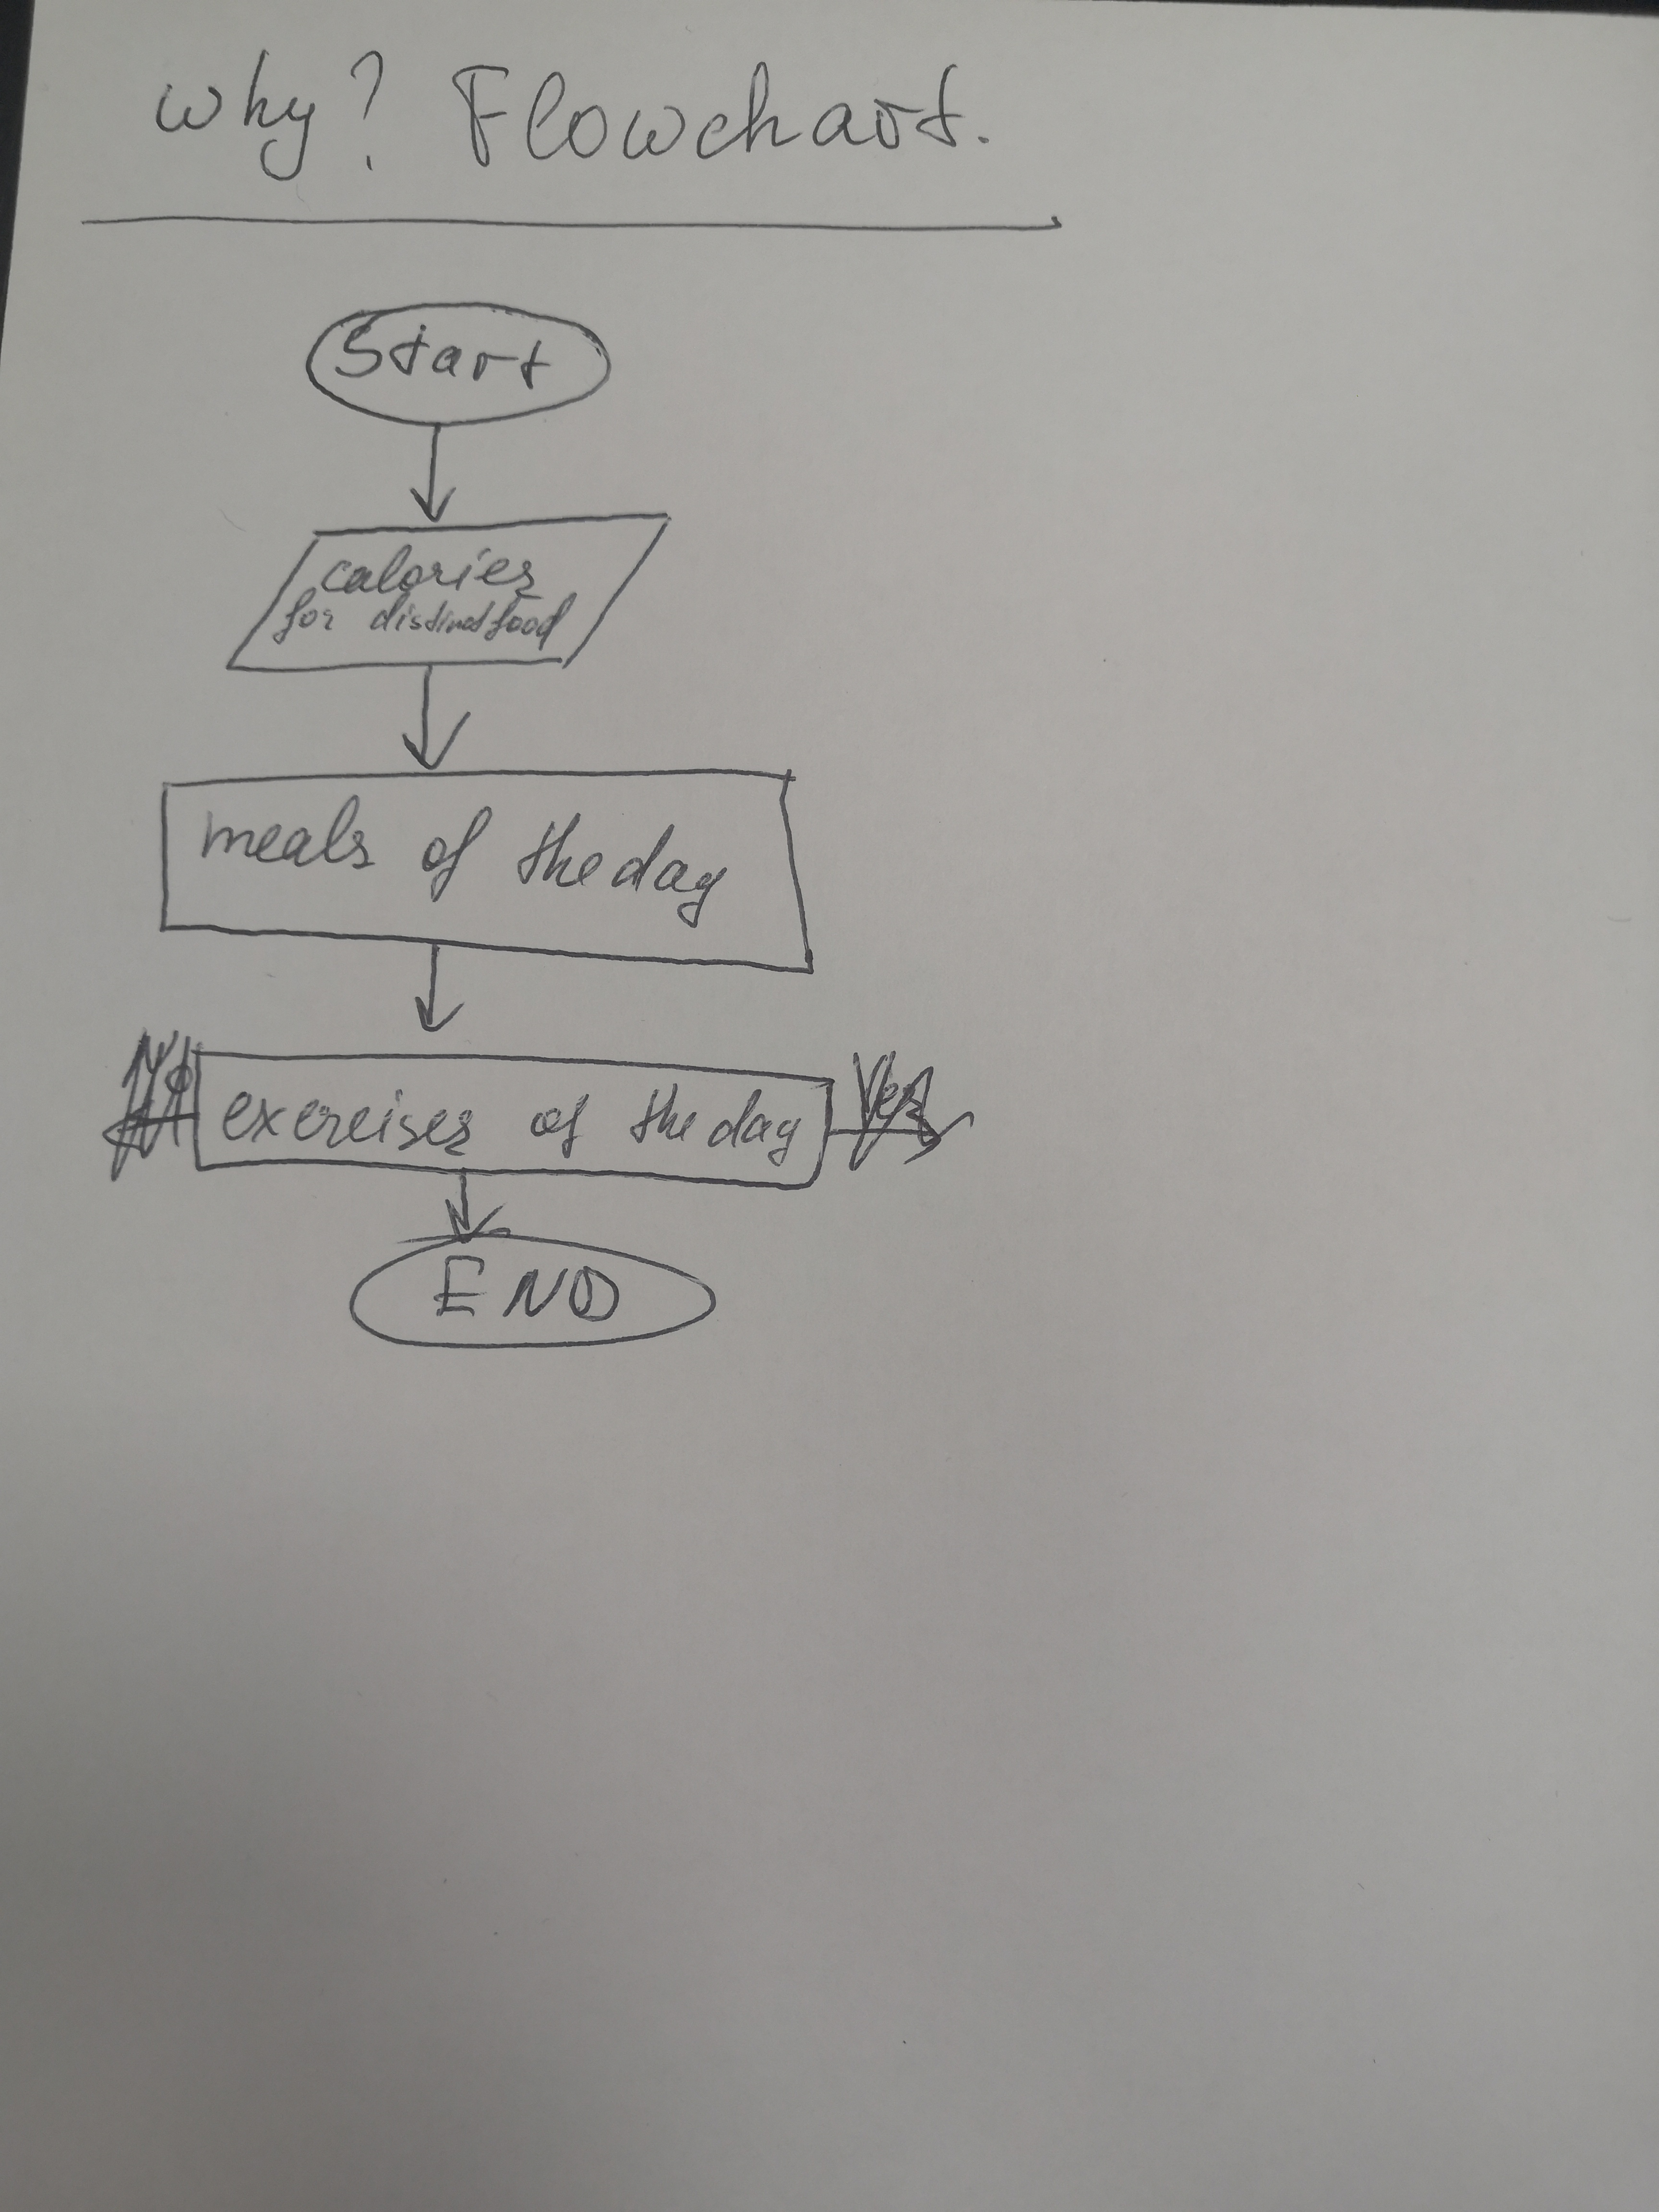 why? Flowchart.
Start
calories
for distinct food
meals of the day
No exercises of the day Yes
END